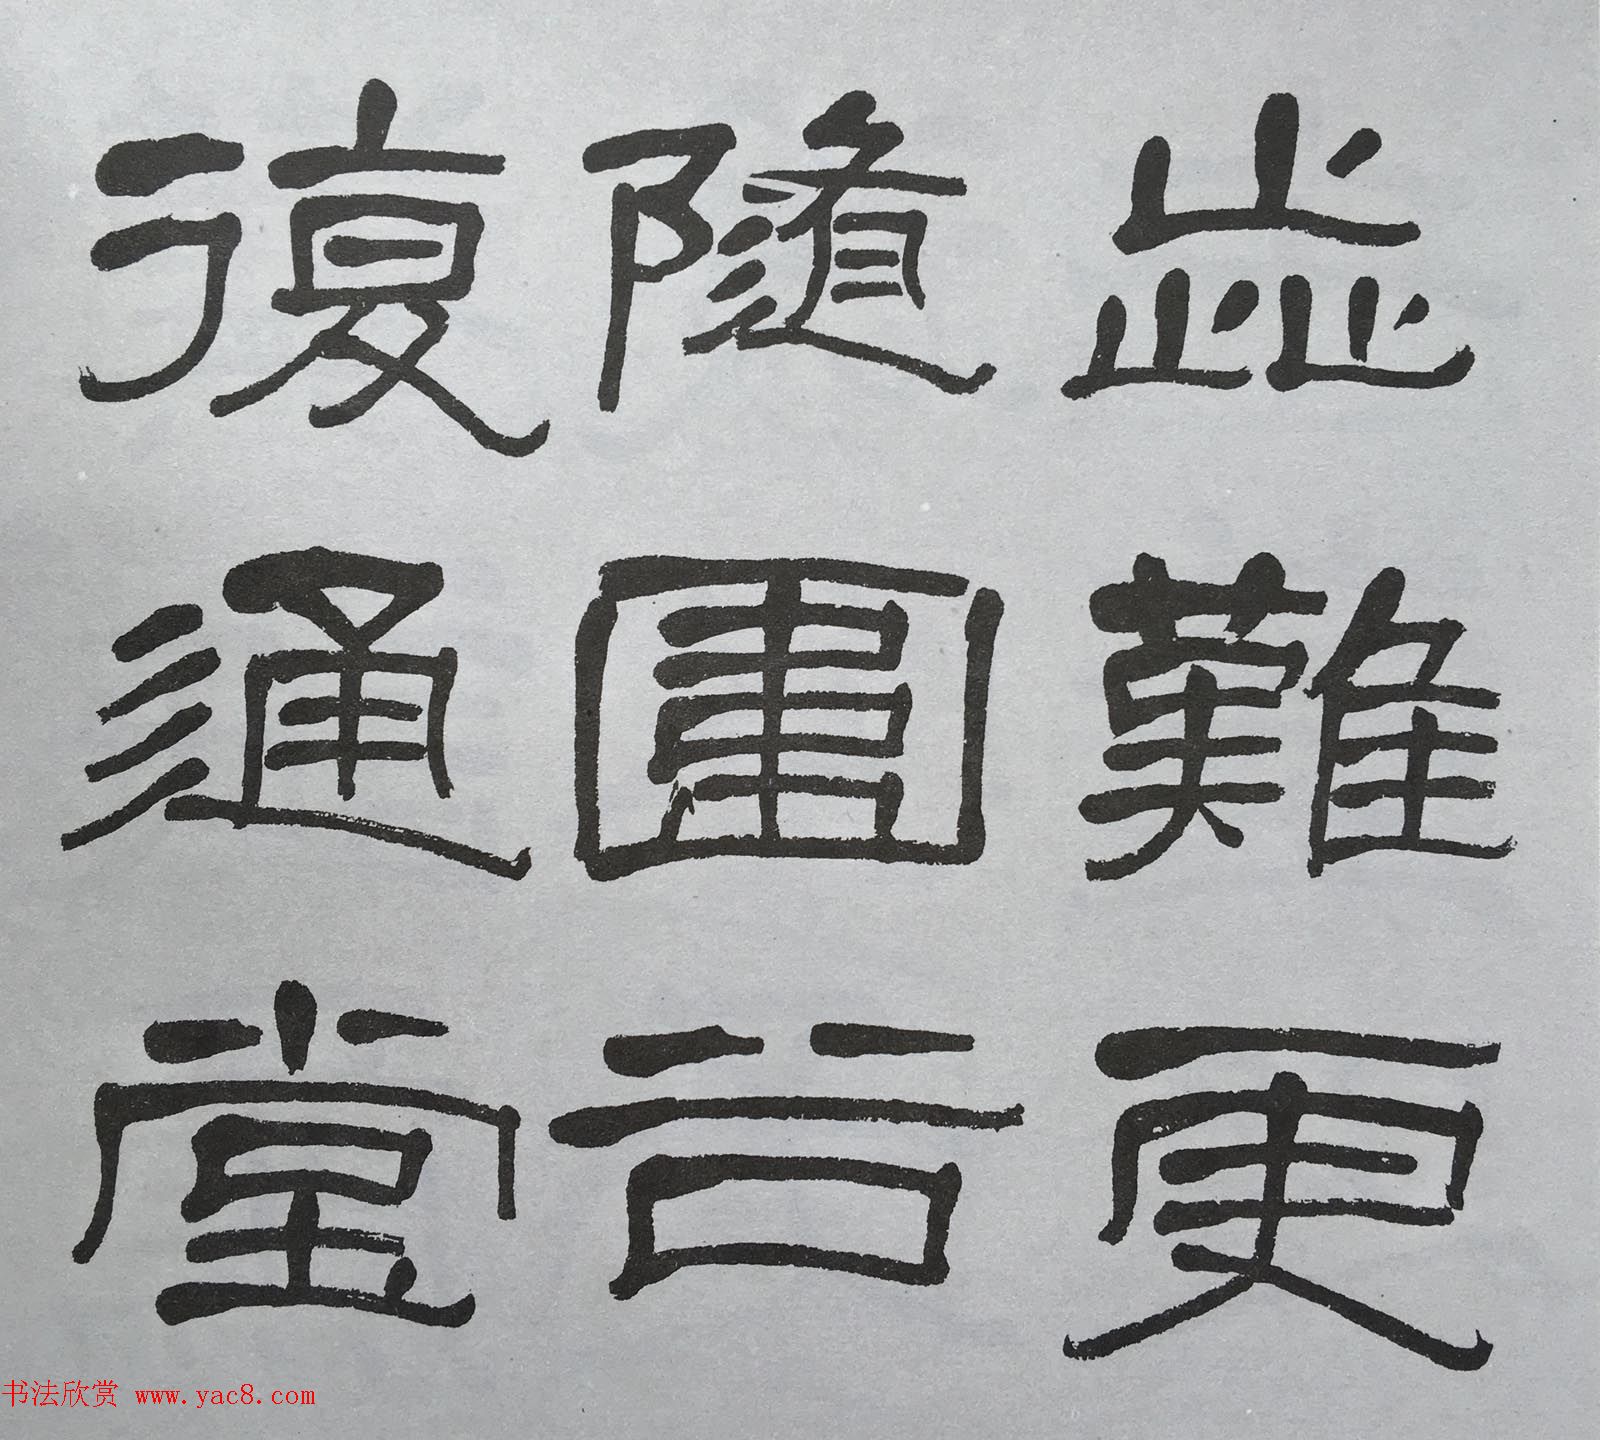 歮難更
隨圍谷
復通堂
书法欣赏 www.yac8.com